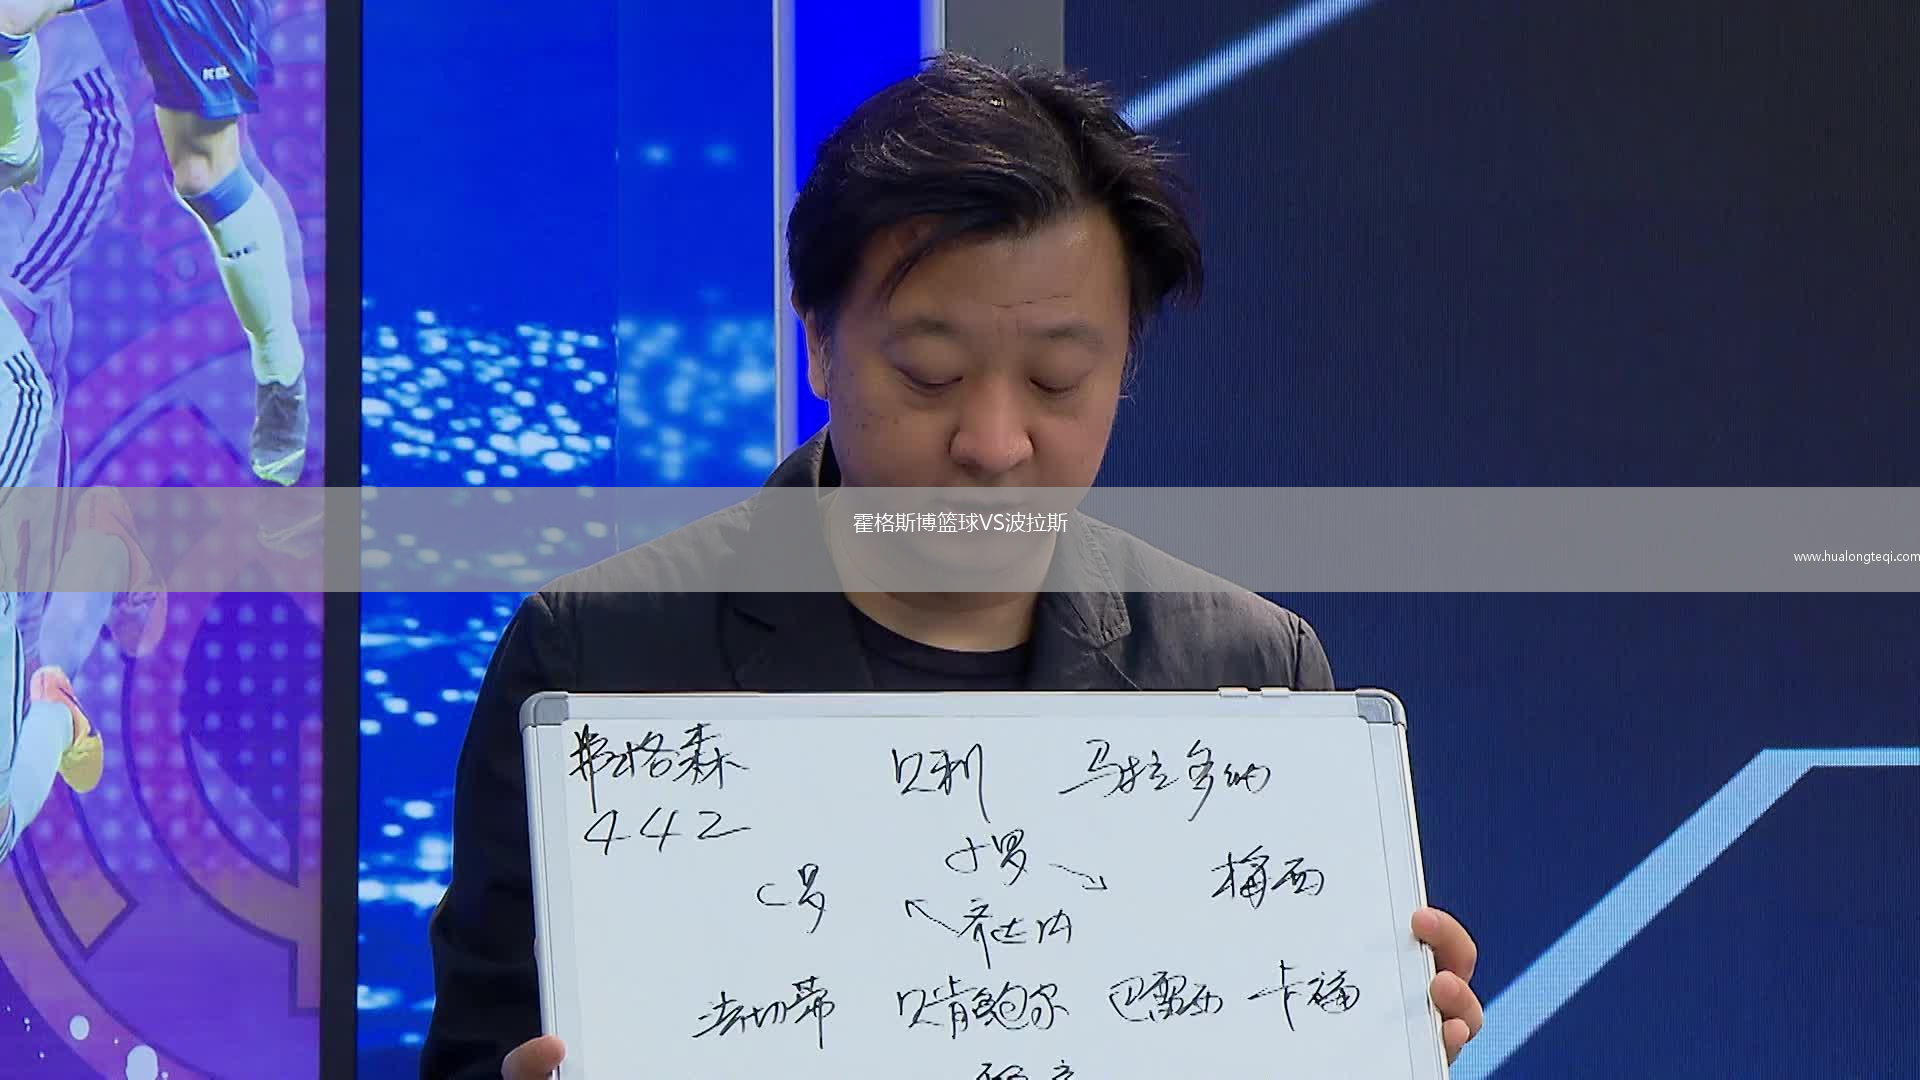 KEL
霍格斯博篮球VS波拉斯
www.hualongteqi.com
弗格森 贝利 马拉多纳
442
小罗
C罗 梅西
齐达内
法切蒂 贝肯鲍尔 巴雷西 卡福